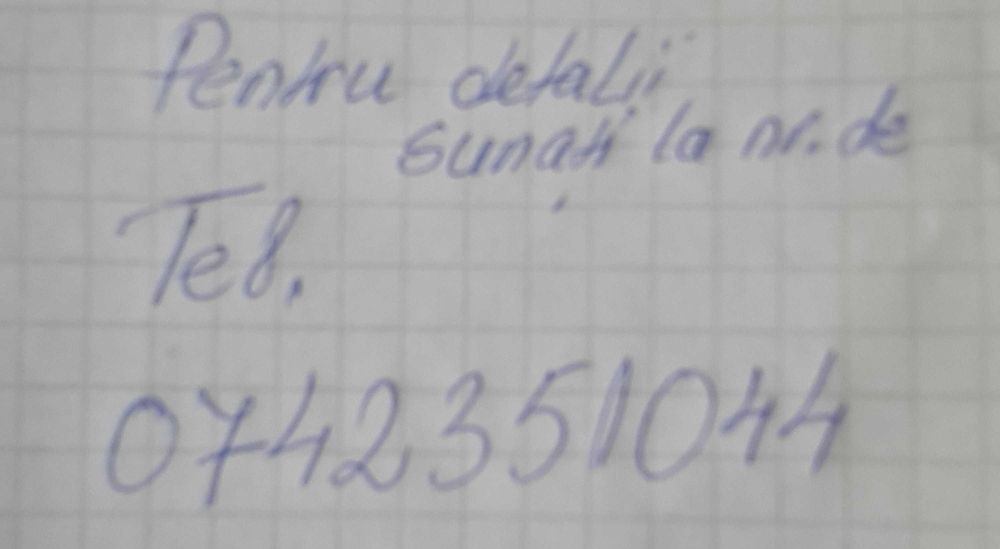 Pentru detalii
sunați la nr. de
Tel.
0742351044